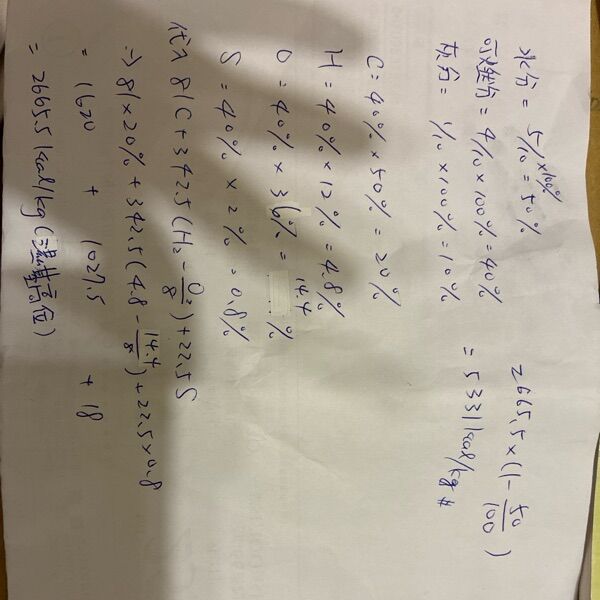 水分 = 5/10 ×100% = 50%
可燃分 = 4/10 ×100% = 40%
灰分 = 1/10 ×100% = 10%
C = 40% × 50% = 20%
H = 40% × 12% = 4.8%
O = 40% × 36% = 14.4 %
S = 40% × 2% = 0.8%
代入 81C + 342.5 (H₂ - O₂/8) + 22.5S
⇒ 81×20% + 342.5 (4.8 - 14.4/8) + 22.5×0.8
= 1620 + 1027.5 + 18
= 2665.5 kcal/kg (濕基高位)
2665.5 × (1 - 50/100)
= 5331 kcal/kg #